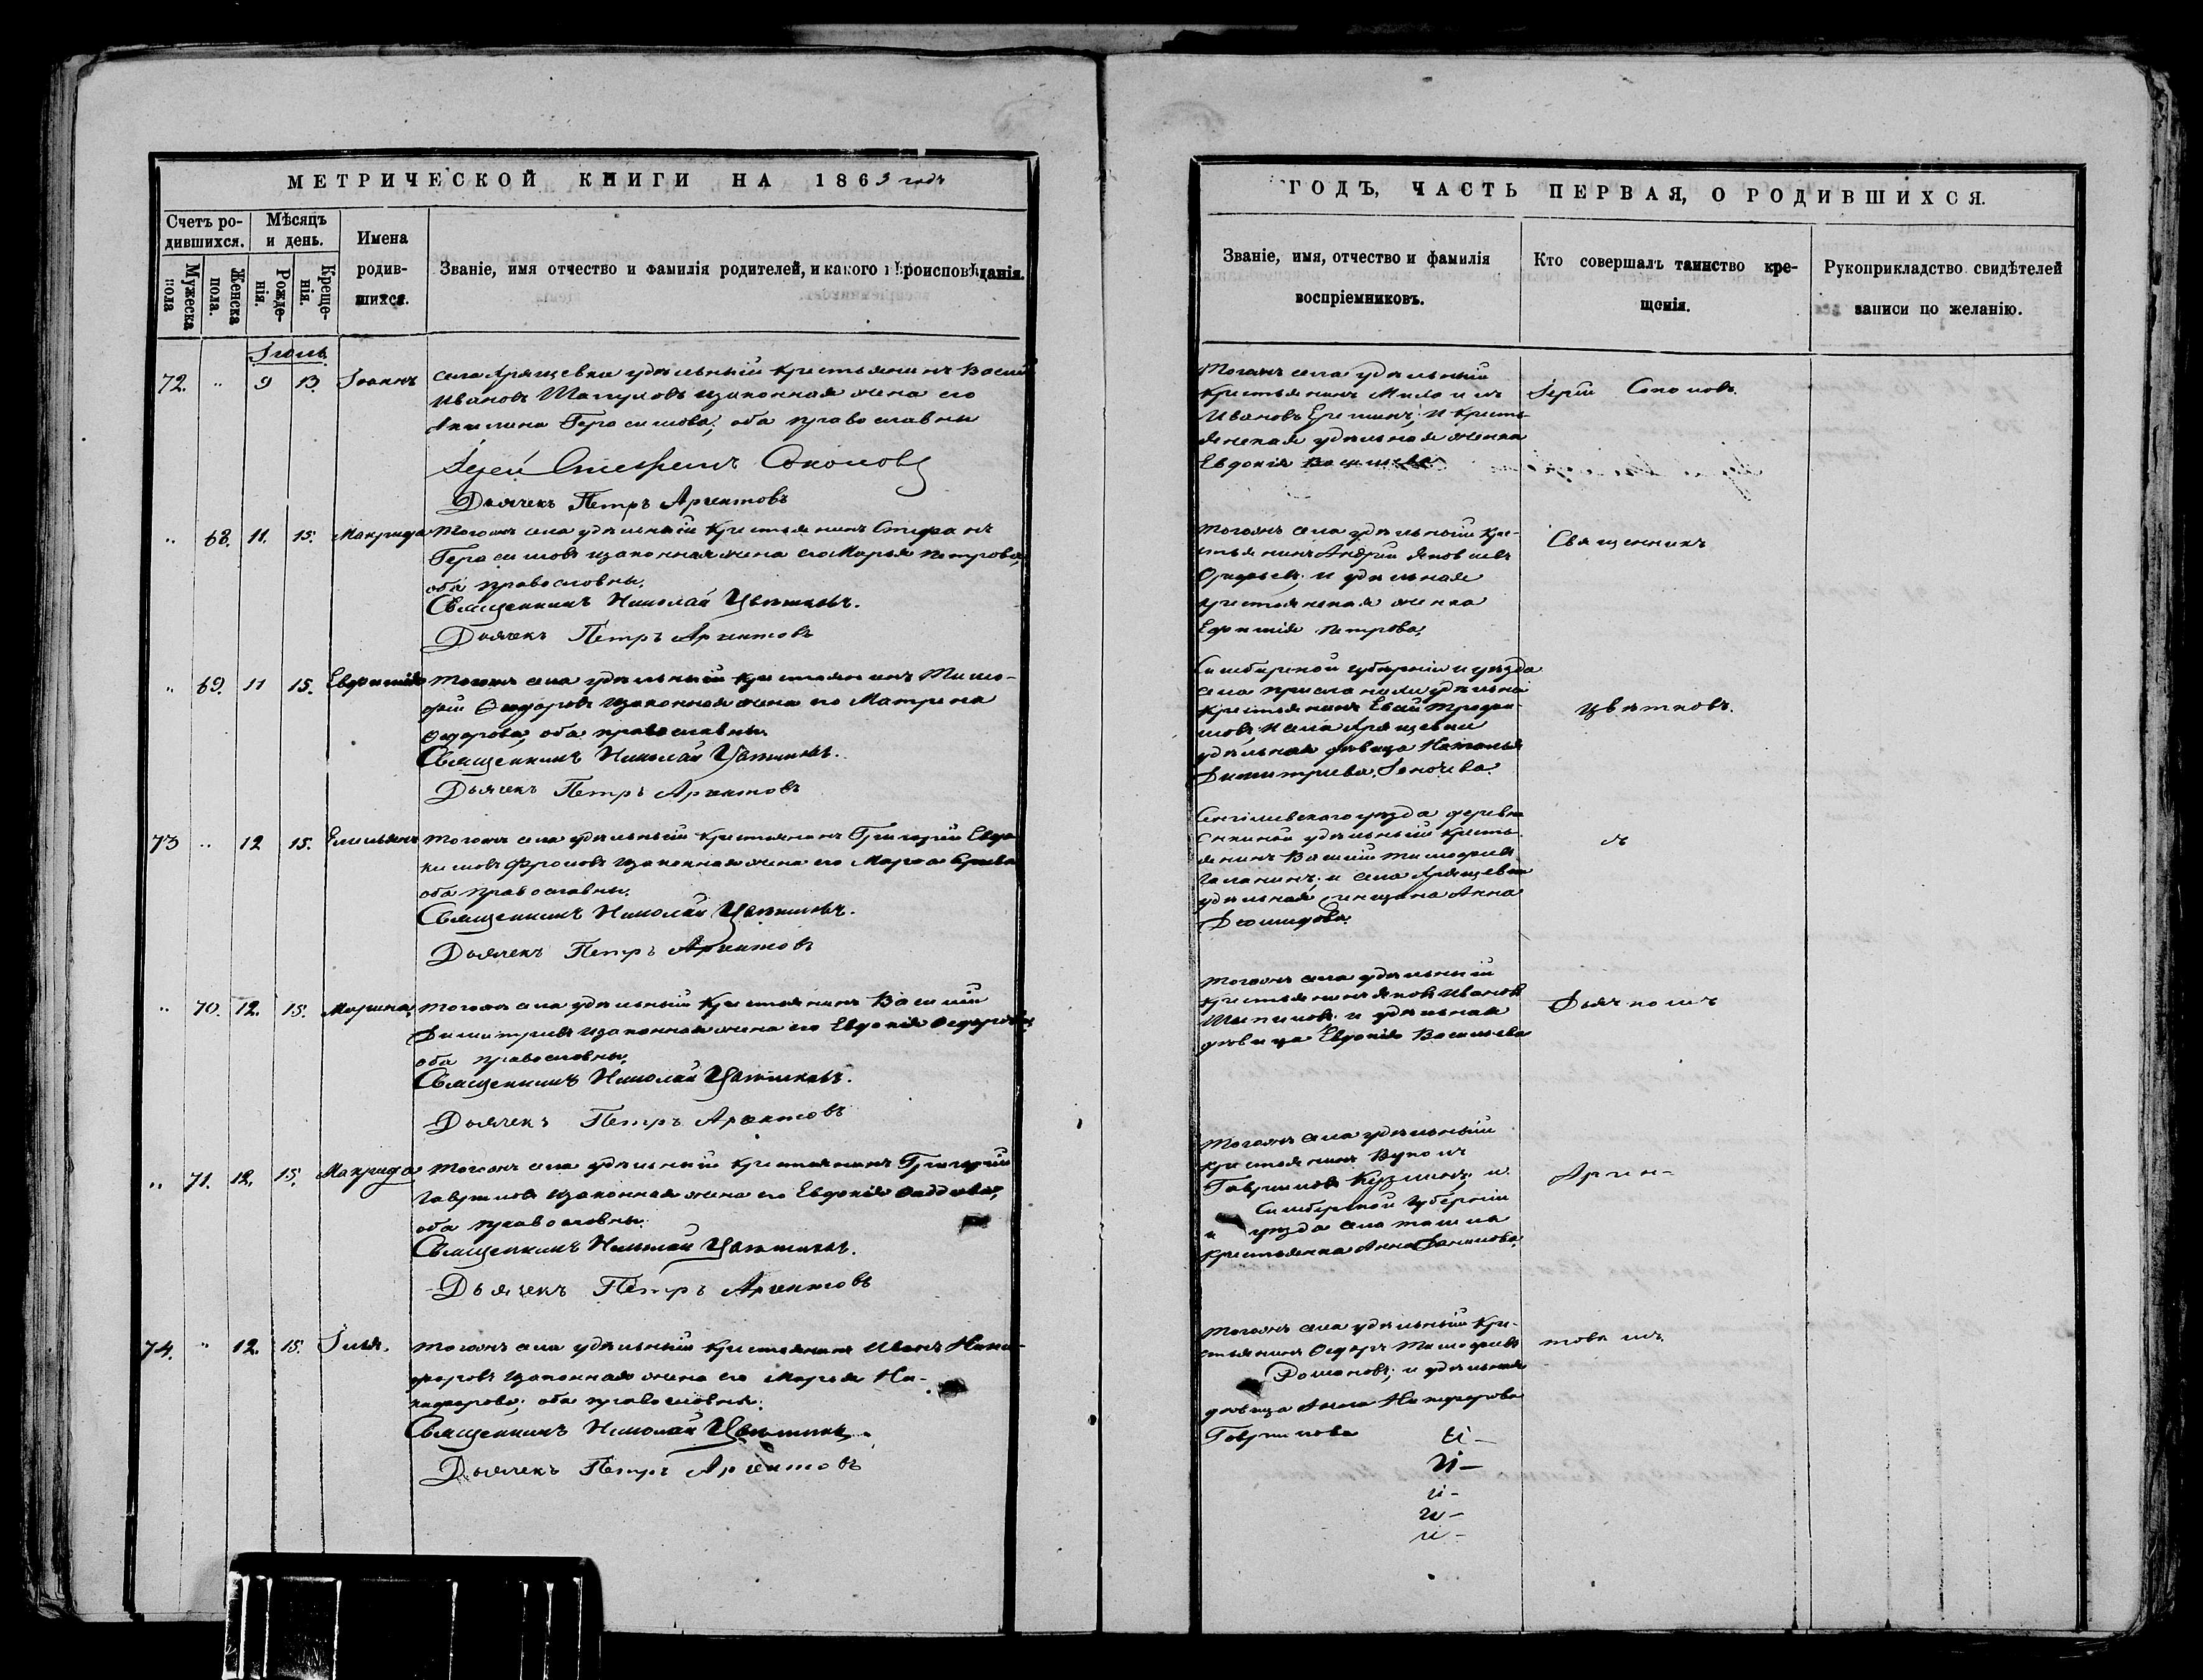 МЕТРИЧЕСКОЙ КНИГИ НА 1863 годъ
Счетъ родившихся.
Мѣсяцъ и день.
Имена родившихся.
Званіе, имя отчество и фамилія родителей, и какого вѣроисповѣданія.
Мужеска пола
Женска пола.
Рожденія.
Крещенія.
Іюль
72. " 9 13. Іоаннъ
села Архщевки удѣльный крестьянинъ Васи
Ивановъ законная жена его
Акилина Герасимова; оба православны
Іерей Соколовъ
Дьячекъ Петръ Аргентовъ
" 68. 11. 15. Макрида
тогожъ села удѣльный крестьянинъ Стефанъ
Герасимовъ и законная жена его Марья Петрова,
оба православны.
Священникъ Николай Цвѣтковъ.
Дьячекъ Петръ Аргентовъ
" 69. 11 15. Евфимія
тогожъ села удѣльный крестьянинъ Тимо-
фей Ѳедоровъ и законная жена его Матрена
оба православны
Священникъ Николай Цвѣтковъ.
Дьячекъ Петръ Аргентовъ
73 " 12 15. Емильянъ
тогожъ села удѣльный крестьянинъ Григорій Евдо-
кимовъ Фроловъ и законная жена его
оба православны.
Священникъ Николай Цвѣтковъ.
Дьячекъ Петръ Аргентовъ
" 70. 12. 15. Марина,
тогожъ села удѣльный крестьянинъ Василій
Димитріевъ и законная жена его Евдокія Ѳедорова,
оба православны.
Священникъ Николай Цвѣтковъ.
Дьячекъ Петръ Аргентовъ
" 71. 12. 15. Макрида
тогожъ села удѣльный крестьянинъ Григорій
Гавриловъ и законная жена его Евдокія
оба православны.
Священникъ Николай Цвѣтковъ.
Дьячекъ Петръ Аргентовъ
74. " 12. 15. Илія.
тогожъ села удѣльный крестьянинъ Иванъ Ники-
форовъ и законная жена его Марья Ни-
кифорова; оба православны.
Священникъ Николай Цвѣтковъ.
Дьячекъ Петръ Аргентовъ
ГОДЪ, ЧАСТЬ ПЕРВАЯ, О РОДИВШИХСЯ.
Званіе, имя, отчество и фамилія воспріемниковъ.
Кто совершалъ таинство крещенія.
Рукоприкладство свидѣтелей записи по желанію.
Тогожъ села удѣльный
крестьянинъ
Ивановъ и кресть-
янская удѣльная женка
Евдокія Васильева
Іерей Соколовъ.
тогожъ села удѣльный кре-
стьянинъ Андрей Яковлевъ
и удѣльная
крестьянская женка
Евфимія Петрова,
Священникъ
Симбирской губерніи и уѣзда
села удѣльна
крестьянинъ
и села Архщевки
удѣльная дѣвица Наталья
Димитріева
Цвѣтковъ.
Сенгилевскаго уѣзда деревни
удѣльный кресть-
янинъ Василій Тимофеевъ
и села Архщевки
удѣльная Анна
съ
тогожъ села удѣльный
крестьянинъ Яковъ Ивановъ
и удѣльная
дѣвица Евдокія Васильева
Дьячкомъ
тогожъ села удѣльный
крестьянинъ Вуколъ
Гавриловъ Кузминъ, и
Симбирской губерніи
уѣзда села
крестьянка Анна Данилова,
Арген-
тогожъ села удѣльный кре-
стьянинъ Ѳедоръ Тимофеевъ
Романовъ; и удѣльная
дѣвица Анна Никифорова
Гаврилова
товымъ.